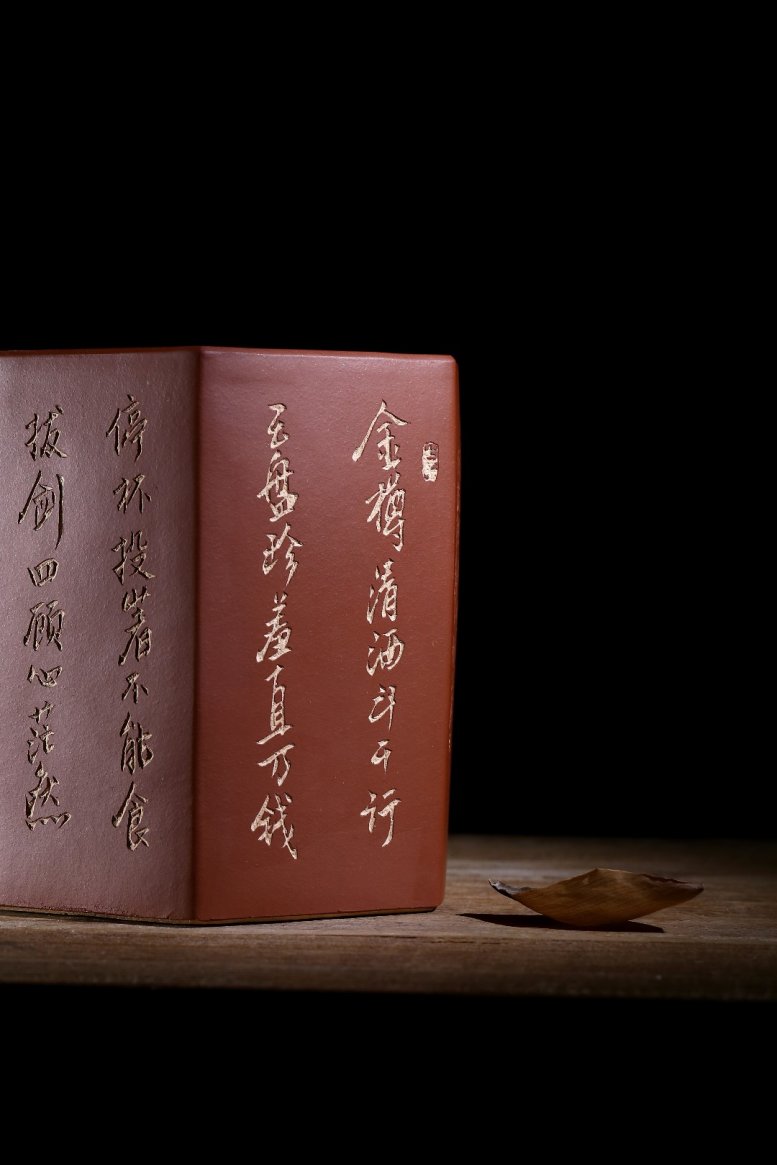 金樽清酒斗千行
玉盘珍羞直万钱
停杯投箸不能食
拔剑四顾心茫然